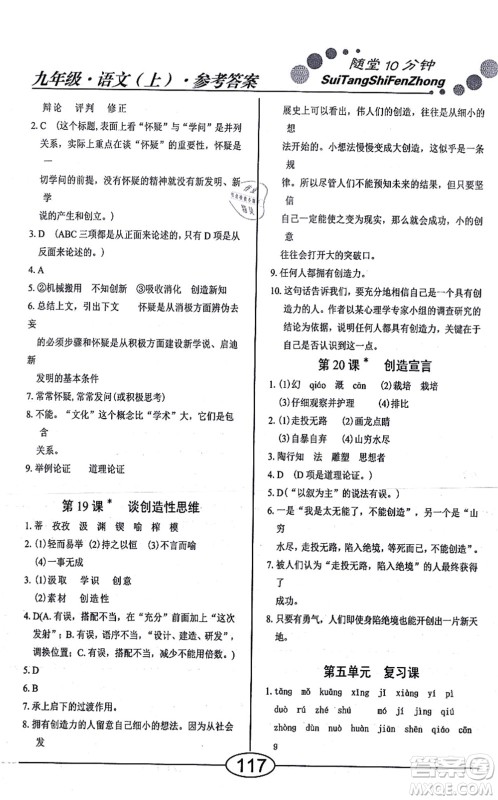 九年级·语文(上)·参考答案
随堂10分钟
SuiTangShiFenZhong
辩论 评判 修正
2. C (这个标题,表面上看“怀疑”与“学问”是并列
关系,实际上重点在谈“怀疑”的重要性,怀疑是
一
切学问的前提,没有怀疑的精神就没有新发明、新
学
说的产生和创立。)
3. D (ABC三项都是从正面来论述,只有D项是从
反面来论述。)
4. A
5. ②机械搬用 不知创新 ③吸收消化 创造性
6. 总结上文,引出下文 怀疑是从消极方面辨伪去
妄
的必须步骤和怀疑是从积极方面建设新学说、启迪
新
发明的基本条件
7. 常常怀疑,常常发问(或积极思考)
8. 不能。“文化”这个概念比“学术”大,它们是包含
关系。
9. 举例论证 道理论证
第19课* 谈创造性思维
1. 莕 孜孜 汲 渊 锲 喻 榨 模
2. (1)轻而易举 (2)持之以恒 (3)不言而喻
(4)一事无成
3. (1)汲取 学识 创意
(2)素材 创造性
4. D(A.有误,搭配不当,在“充分”前面加上“这次
发射”;B.有误,语序不当,“设计、建造、研发”,
调换位置;C.有误,搭配不当,去掉“程度”。)
5. D
6. B
7. 承上启下的过渡作用。
8. 拥有创造力的人留意自己细小的想法。从社会
发
展史上可以看出,伟人们的创造,往往是从细小的
想
法开始的。小想法慢慢变成大创造,这似乎是一
条
规律。所以千万不能忽视小想法,坚信自己的小
创意
一定能使用,不灰心,那么就会成功,小创意
往
往会打开大的突破口。
9. 任何人都拥有创造力。
10. 这句话告诉我们,要充分地相信自己是一个具有
创造力的人。作者以某心理学专家小组的调查研究
结果为事实论据,告诉我们有无创造力,关键就
是否认识到这一点。
第20课* 创造宣言
1. (1)幻 qiáo 溉 cān (2)栽培 栽培
(3)仔细观察并护理 (4)排比
2. (1)走投无路 (2)画龙点睛
(3)自暴自弃 (4)山穷水尽
3. 陶行知 法 雕塑 思想者
4. D (应为道理论证。)
5. D(“以叙为主”的说法有误。)
6. 一是不一定“非走不可”,可以“创造”。二是“山
穷
水尽、走投无路,陷入绝境,等死而已,不能创造”。
7. 被人们认为“走投无路,陷入绝境”的人也可以创
造
成功。
8. 只要有勇气,人们即使身陷绝境也能开创一片新天
地。
第五单元 复习课
1. tǎng mō kuǎng xíng jī xiàng yí pì
duò rú zhé shú duò ruì hàn
zhòng dùn lùn quán qiào qiào cān
g
117